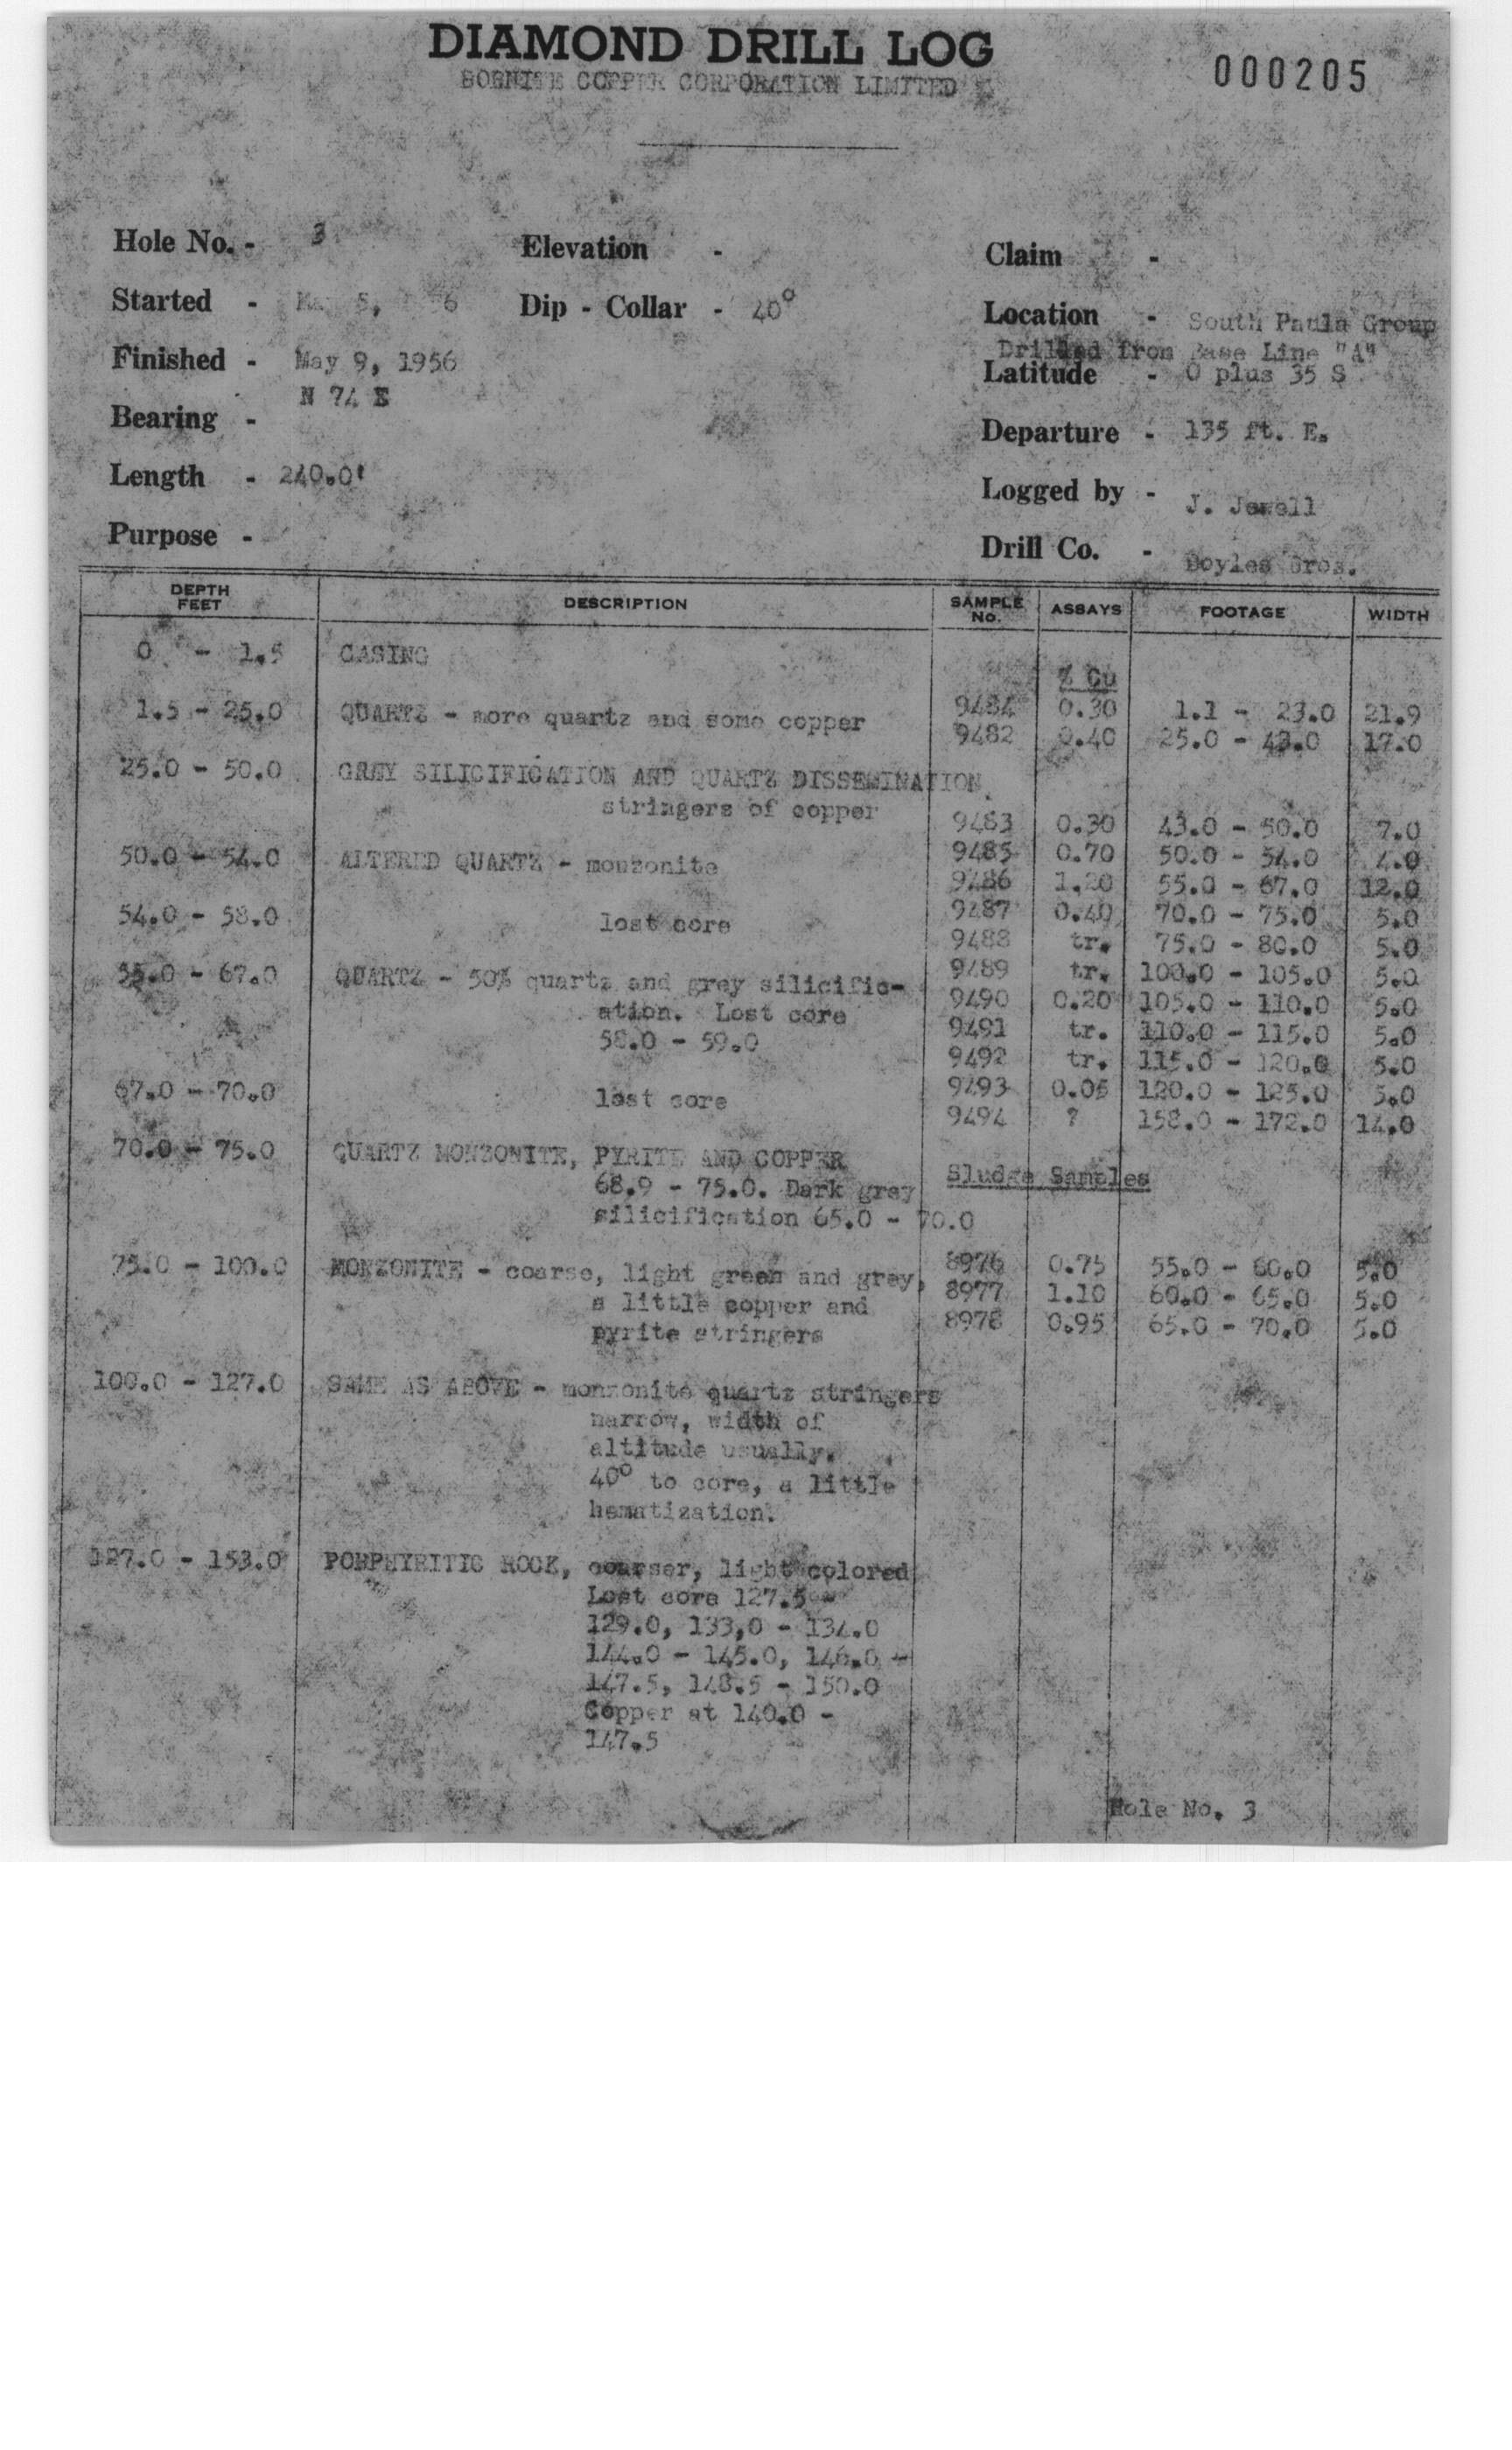 DIAMOND DRILL LOG
000205
BORNITE COPPER CORPORATION LIMITED
Hole No. - 3
Elevation -
Claim -
Started - 5, 6
Dip - Collar - 40°
Location - South Paula Group
Drilled from Base Line "A"
Finished - May 9, 1956
Latitude - 0 plus 35 S
Bearing - N 74 E
Departure - 135 ft. E.
Length - 240.0'
Logged by - J. Jewell
Purpose -
Drill Co. - Boyles Bros.
DEPTH FEET DESCRIPTION SAMPLE No. ASSAYS FOOTAGE WIDTH
0 - 1.5 CASING
% Cu
1.5 - 25.0 QUARTZ - more quartz and some copper 9484 0.30 1.1 - 23.0 21.9
9482 0.40 25.0 - 43.0 17.0
25.0 - 50.0 GREY SILICIFICATION AND QUARTZ DISSEMINATION
stringers of copper
9483 0.30 43.0 - 50.0 7.0
50.0 - 54.0 ALTERED QUARTZ - monzonite 9485 0.70 50.0 - 54.0 4.0
9486 1.20 55.0 - 67.0 12.0
54.0 - 58.0 lost core 9487 0.40 70.0 - 75.0 5.0
9488 tr. 75.0 - 80.0 5.0
55.0 - 67.0 QUARTZ - 50% quartz and grey silicific- 9489 tr. 100.0 - 105.0 5.0
ation. Lost core 9490 0.20 105.0 - 110.0 5.0
58.0 - 59.0 9491 tr. 110.0 - 115.0 5.0
9492 tr. 115.0 - 120.0 5.0
67.0 - 70.0 lost core 9493 0.05 120.0 - 125.0 5.0
9494 ? 158.0 - 172.0 14.0
70.0 - 75.0 QUARTZ MONZONITE, PYRITE AND COPPER
68.9 - 75.0. Dark grey Sludge Samples
silicification 65.0 - 70.0
75.0 - 100.0 MONZONITE - coarse, light green and grey, 8976 0.75 55.0 - 60.0 5.0
a little copper and 8977 1.10 60.0 - 65.0 5.0
pyrite stringers 8978 0.95 65.0 - 70.0 5.0
100.0 - 127.0 SAME AS ABOVE - monzonite quartz stringers
narrow, width of
altitude usually.
40° to core, a little
hematization.
127.0 - 153.0 PORPHYRITIC ROCK, coarser, light colored
Lost core 127.5 -
129.0, 133,0 - 134.0
144.0 - 145.0, 146.0 -
147.5, 148.5 - 150.0
Copper at 140.0 -
147.5
Hole No. 3